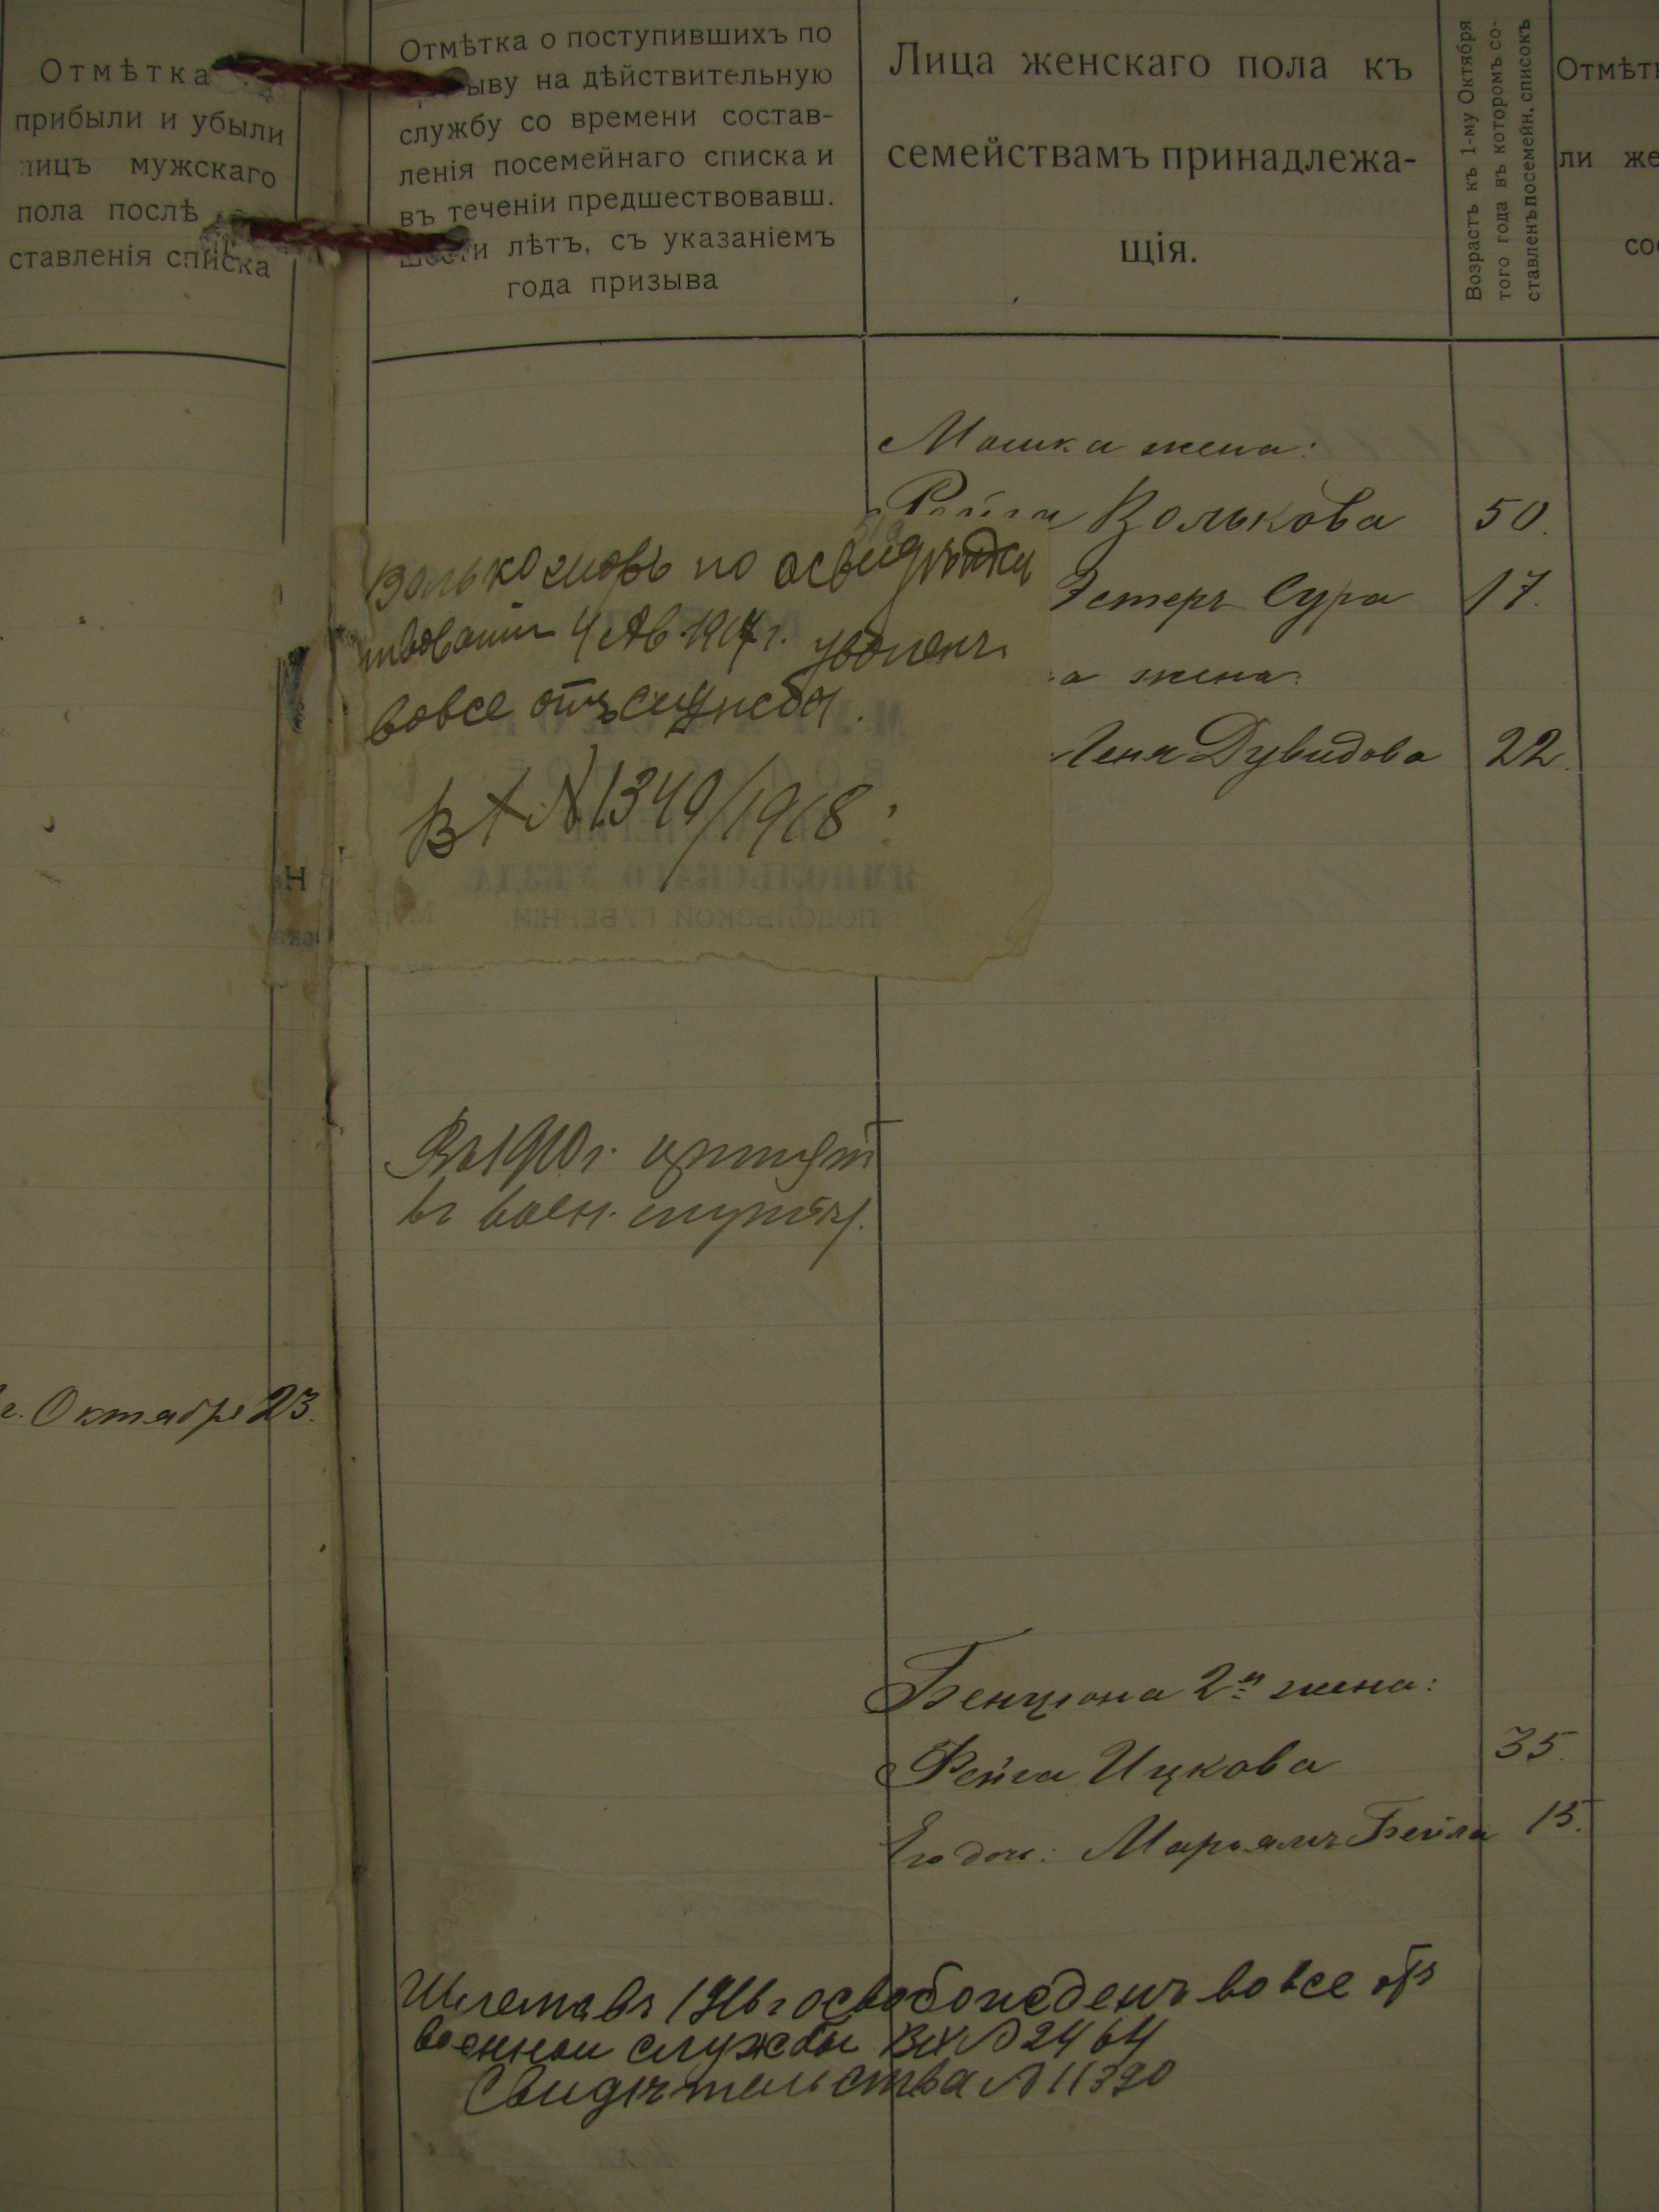 Отмѣтка
прибыли и убыли
лицъ мужскаго
пола послѣ
ставленія списка
Отмѣтка о поступившихъ по
ыву на дѣйствительную
службу со времени состав-
ленія посемейнаго списка и
въ теченіи предшествовавш.
шести лѣтъ, съ указаніемъ
года призыва
Лица женскаго пола къ
семействамъ принадлежа-
щія.
Возрастъ къ 1-му Октября
того года въ которомъ со-
ставленъ посемейн. списокъ
Отмѣт
ли же
со
Мошка жена:
Рейза Волькова 50.
Эстеръ Сура 17.
а жена:
Геня Дувидова 22.
Волько по освидѣ
тельствованіи 4 Ав. 1917 г. уволенъ
вовсе отъ службы.
Вх № 1340/1918
МУ
ЯМПОЛЬСКАГО УѢЗДА
ПОДОЛЬСКОЙ ГУБЕРНІИ.
Въ 1910 г. принятъ
въ воен. службу.
г. Октября 23.
Бенціона 2я жена:
Фейга Ицкова 35.
Его доч: Марьямъ Бейла 15.
Шлема въ 1916 г освобожденъ вовсе отъ
военной службы Вх № 2464
Свидѣтельства № 11390